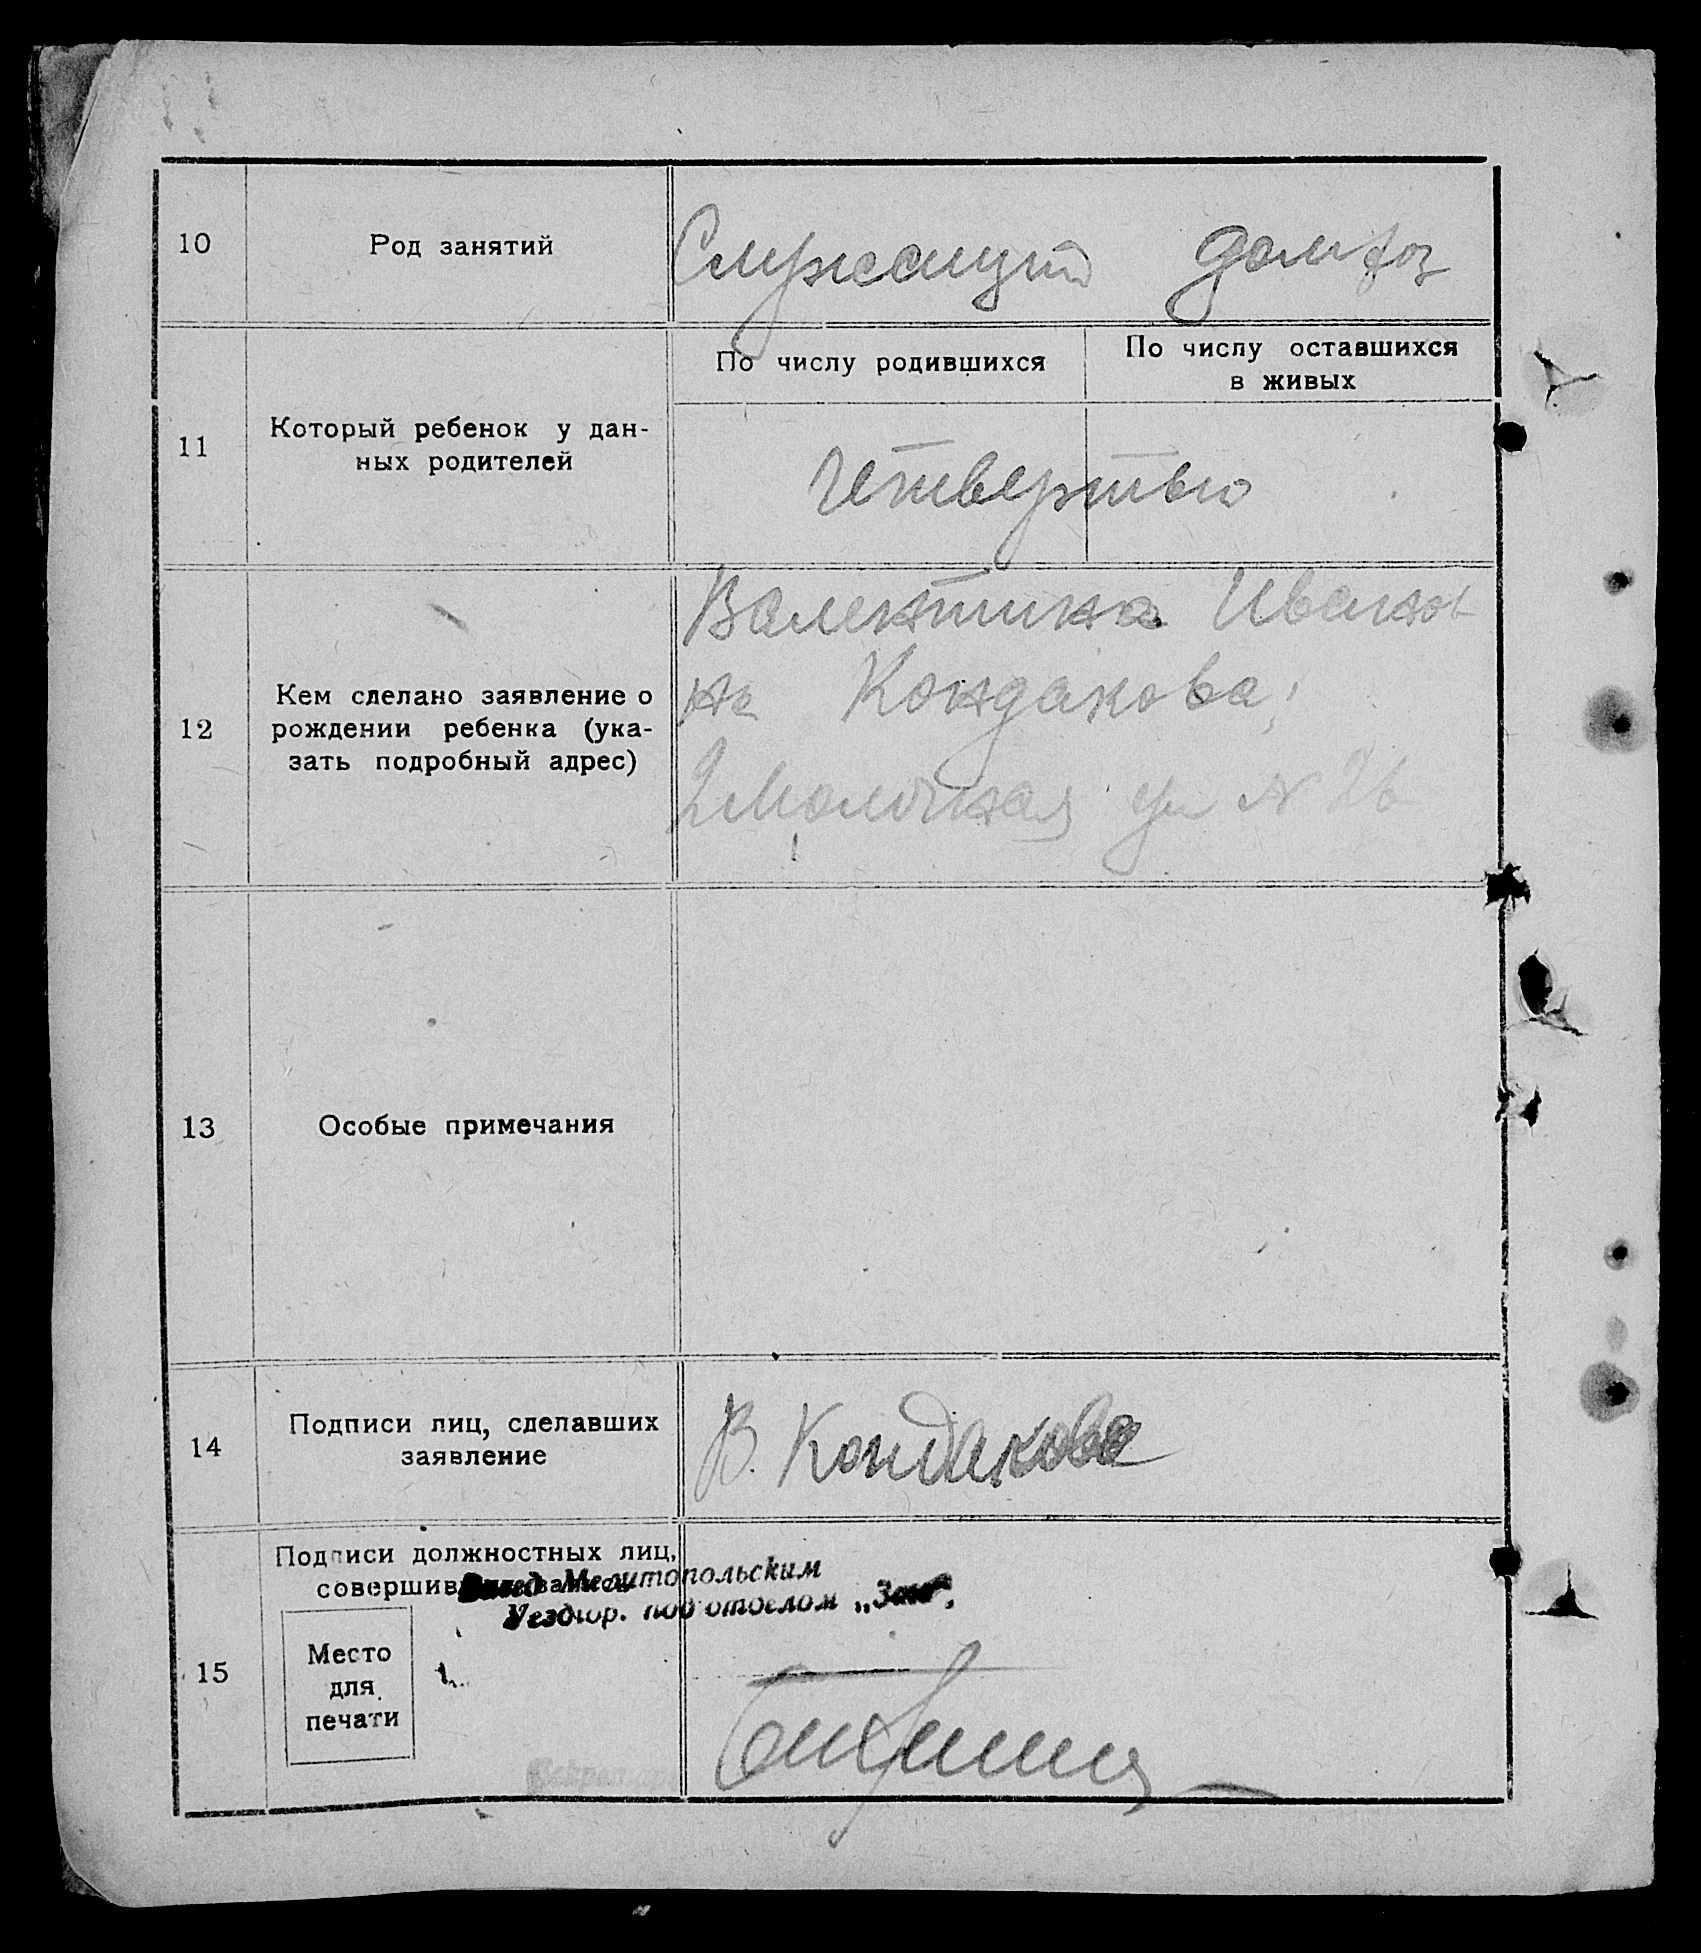 10 Род занятий Служащий домхоз
По числу родившихся По числу оставшихся
в живых
11 Который ребенок у дан-
ных родителей
Четвертью
12 Кем сделано заявление о
рождении ребенка (ука-
зать подробный адрес)
Валентина Иванов
на Кондакова,
2 Молочная ул N 26
13 Особые примечания
14 Подписи лиц, сделавших
заявление
В. Кондакова
15 Подписи должностных лиц,
Мелитопольским
Уездгор. подотделом „Загс".
Место
для
печати
Секретарь